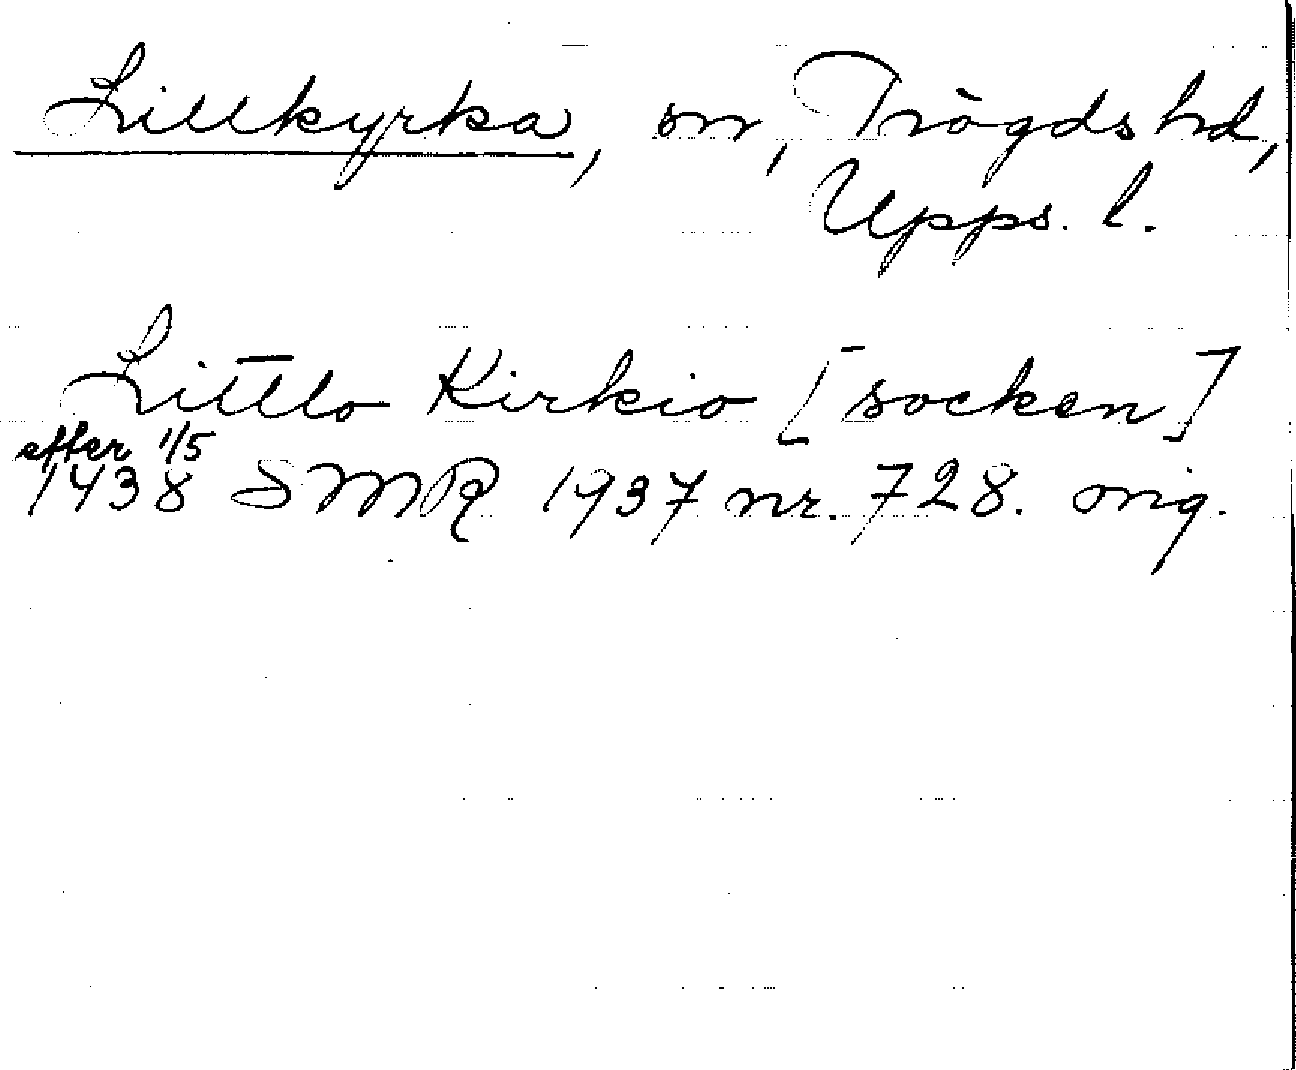 Lillkyrka, sn, Trögds hd,
Upps. l.
Littlo Kirkio [socken]
efter 1/5
1438 SMR 1937 nr. 728. orig.